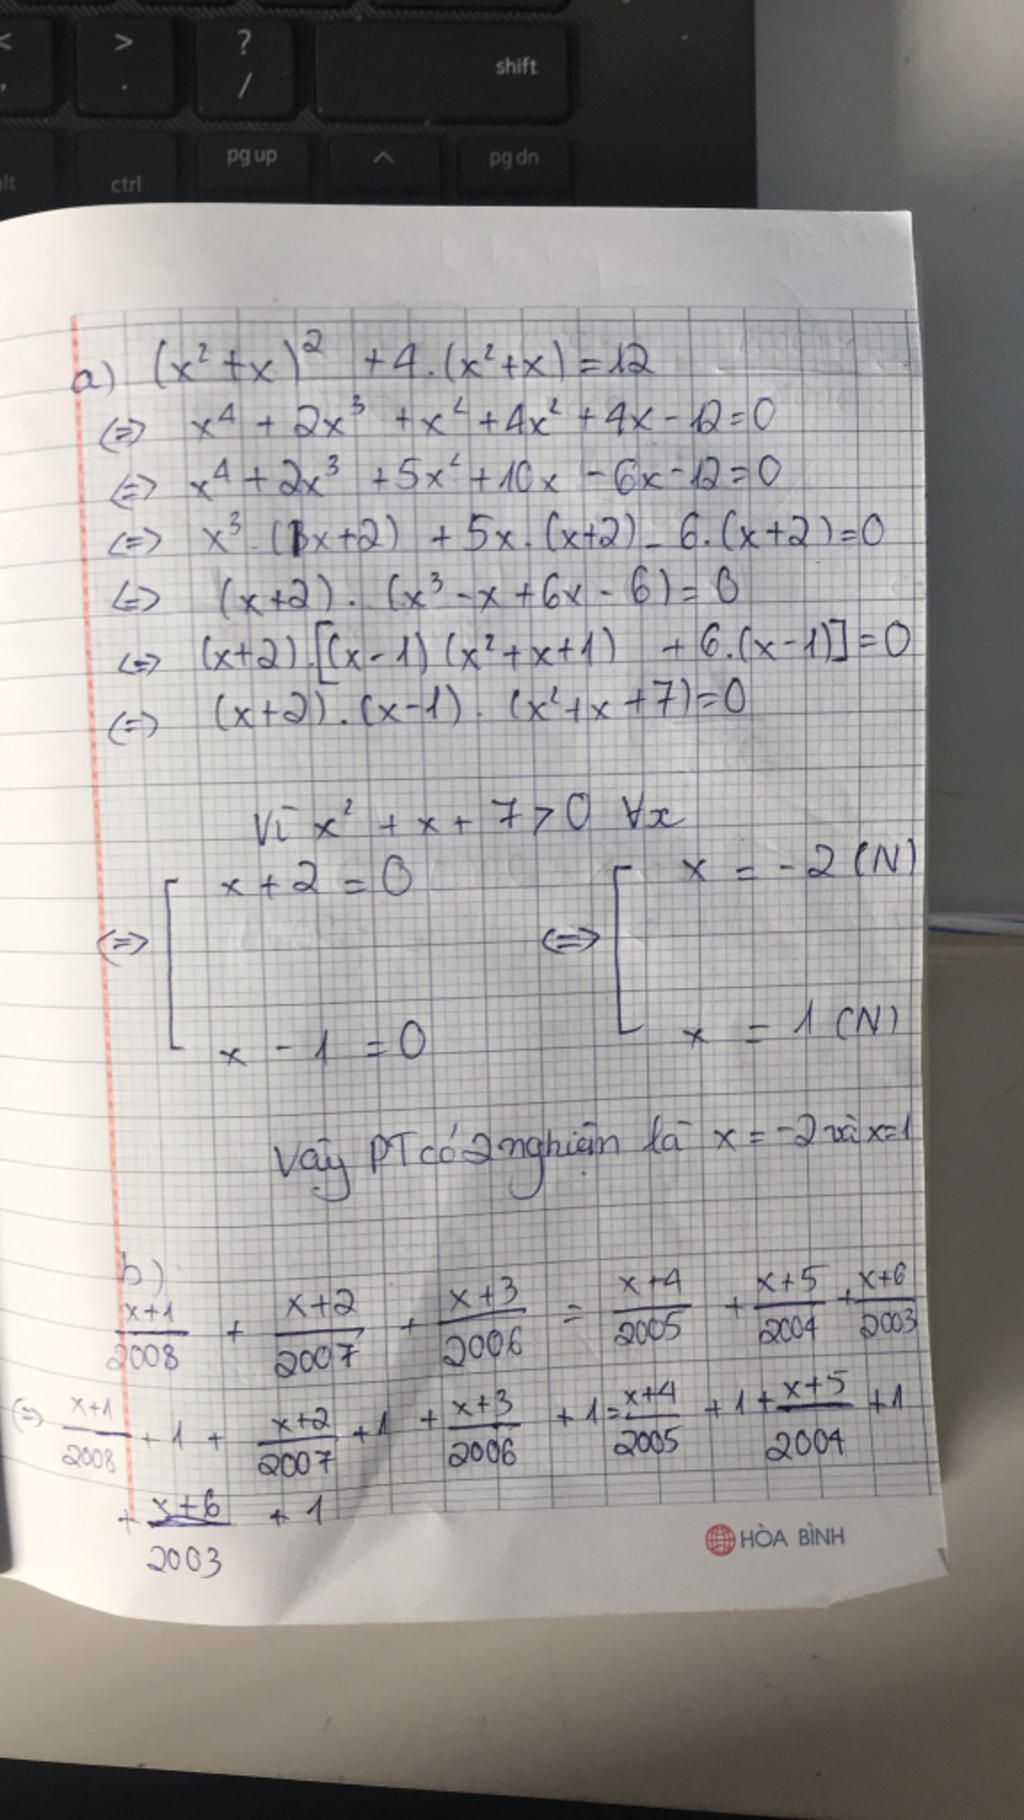 <
,
>
.
?
/
shift
pg up
^
pg dn
ctrl
a) (x² + x)² + 4.(x² + x) = 12
<=> x⁴ + 2x³ + x² + 4x² + 4x - 12 = 0
<=> x⁴ + 2x³ + 5x² + 10x - 6x - 12 = 0
<=> x³.(x+2) + 5x.(x+2) - 6.(x+2) = 0
<=> (x+2).(x³ - x + 6x - 6) = 0
<=> (x+2).[(x-1)(x² + x + 1) + 6.(x-1)] = 0
<=> (x+2).(x-1).(x² + x + 7) = 0
Vì x² + x + 7 > 0 ∀x
<=> [ x + 2 = 0 <=> [ x = -2 (N)
x - 1 = 0 x = 1 (N)
Vậy PT có 2 nghiệm là x = -2 và x = 1
b)
(x+1)/2008 + (x+2)/2007 + (x+3)/2006 = (x+4)/2005 + (x+5)/2004 + (x+6)/2003
(=) (x+1)/2008 + 1 + (x+2)/2007 + 1 + (x+3)/2006 + 1 = (x+4)/2005 + 1 + (x+5)/2004 + 1
+ (x+6)/2003 + 1
HÒA BÌNH